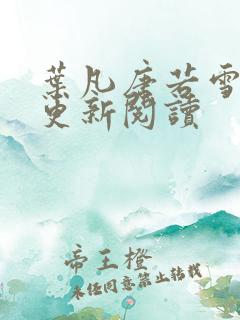 葉凡唐若雪
更新閱讀
帝王橙
未经同意禁止转载